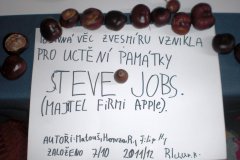 VĚC ZVESMÍRU VZNIKLA
PRO UCTĚNÍ PAMÁTKY
STEVE JOBS.
(MAJTEL FIRMI APPLE).
AUTOŘI: Matouš,
ZALOŽENO 7/10 2011/12